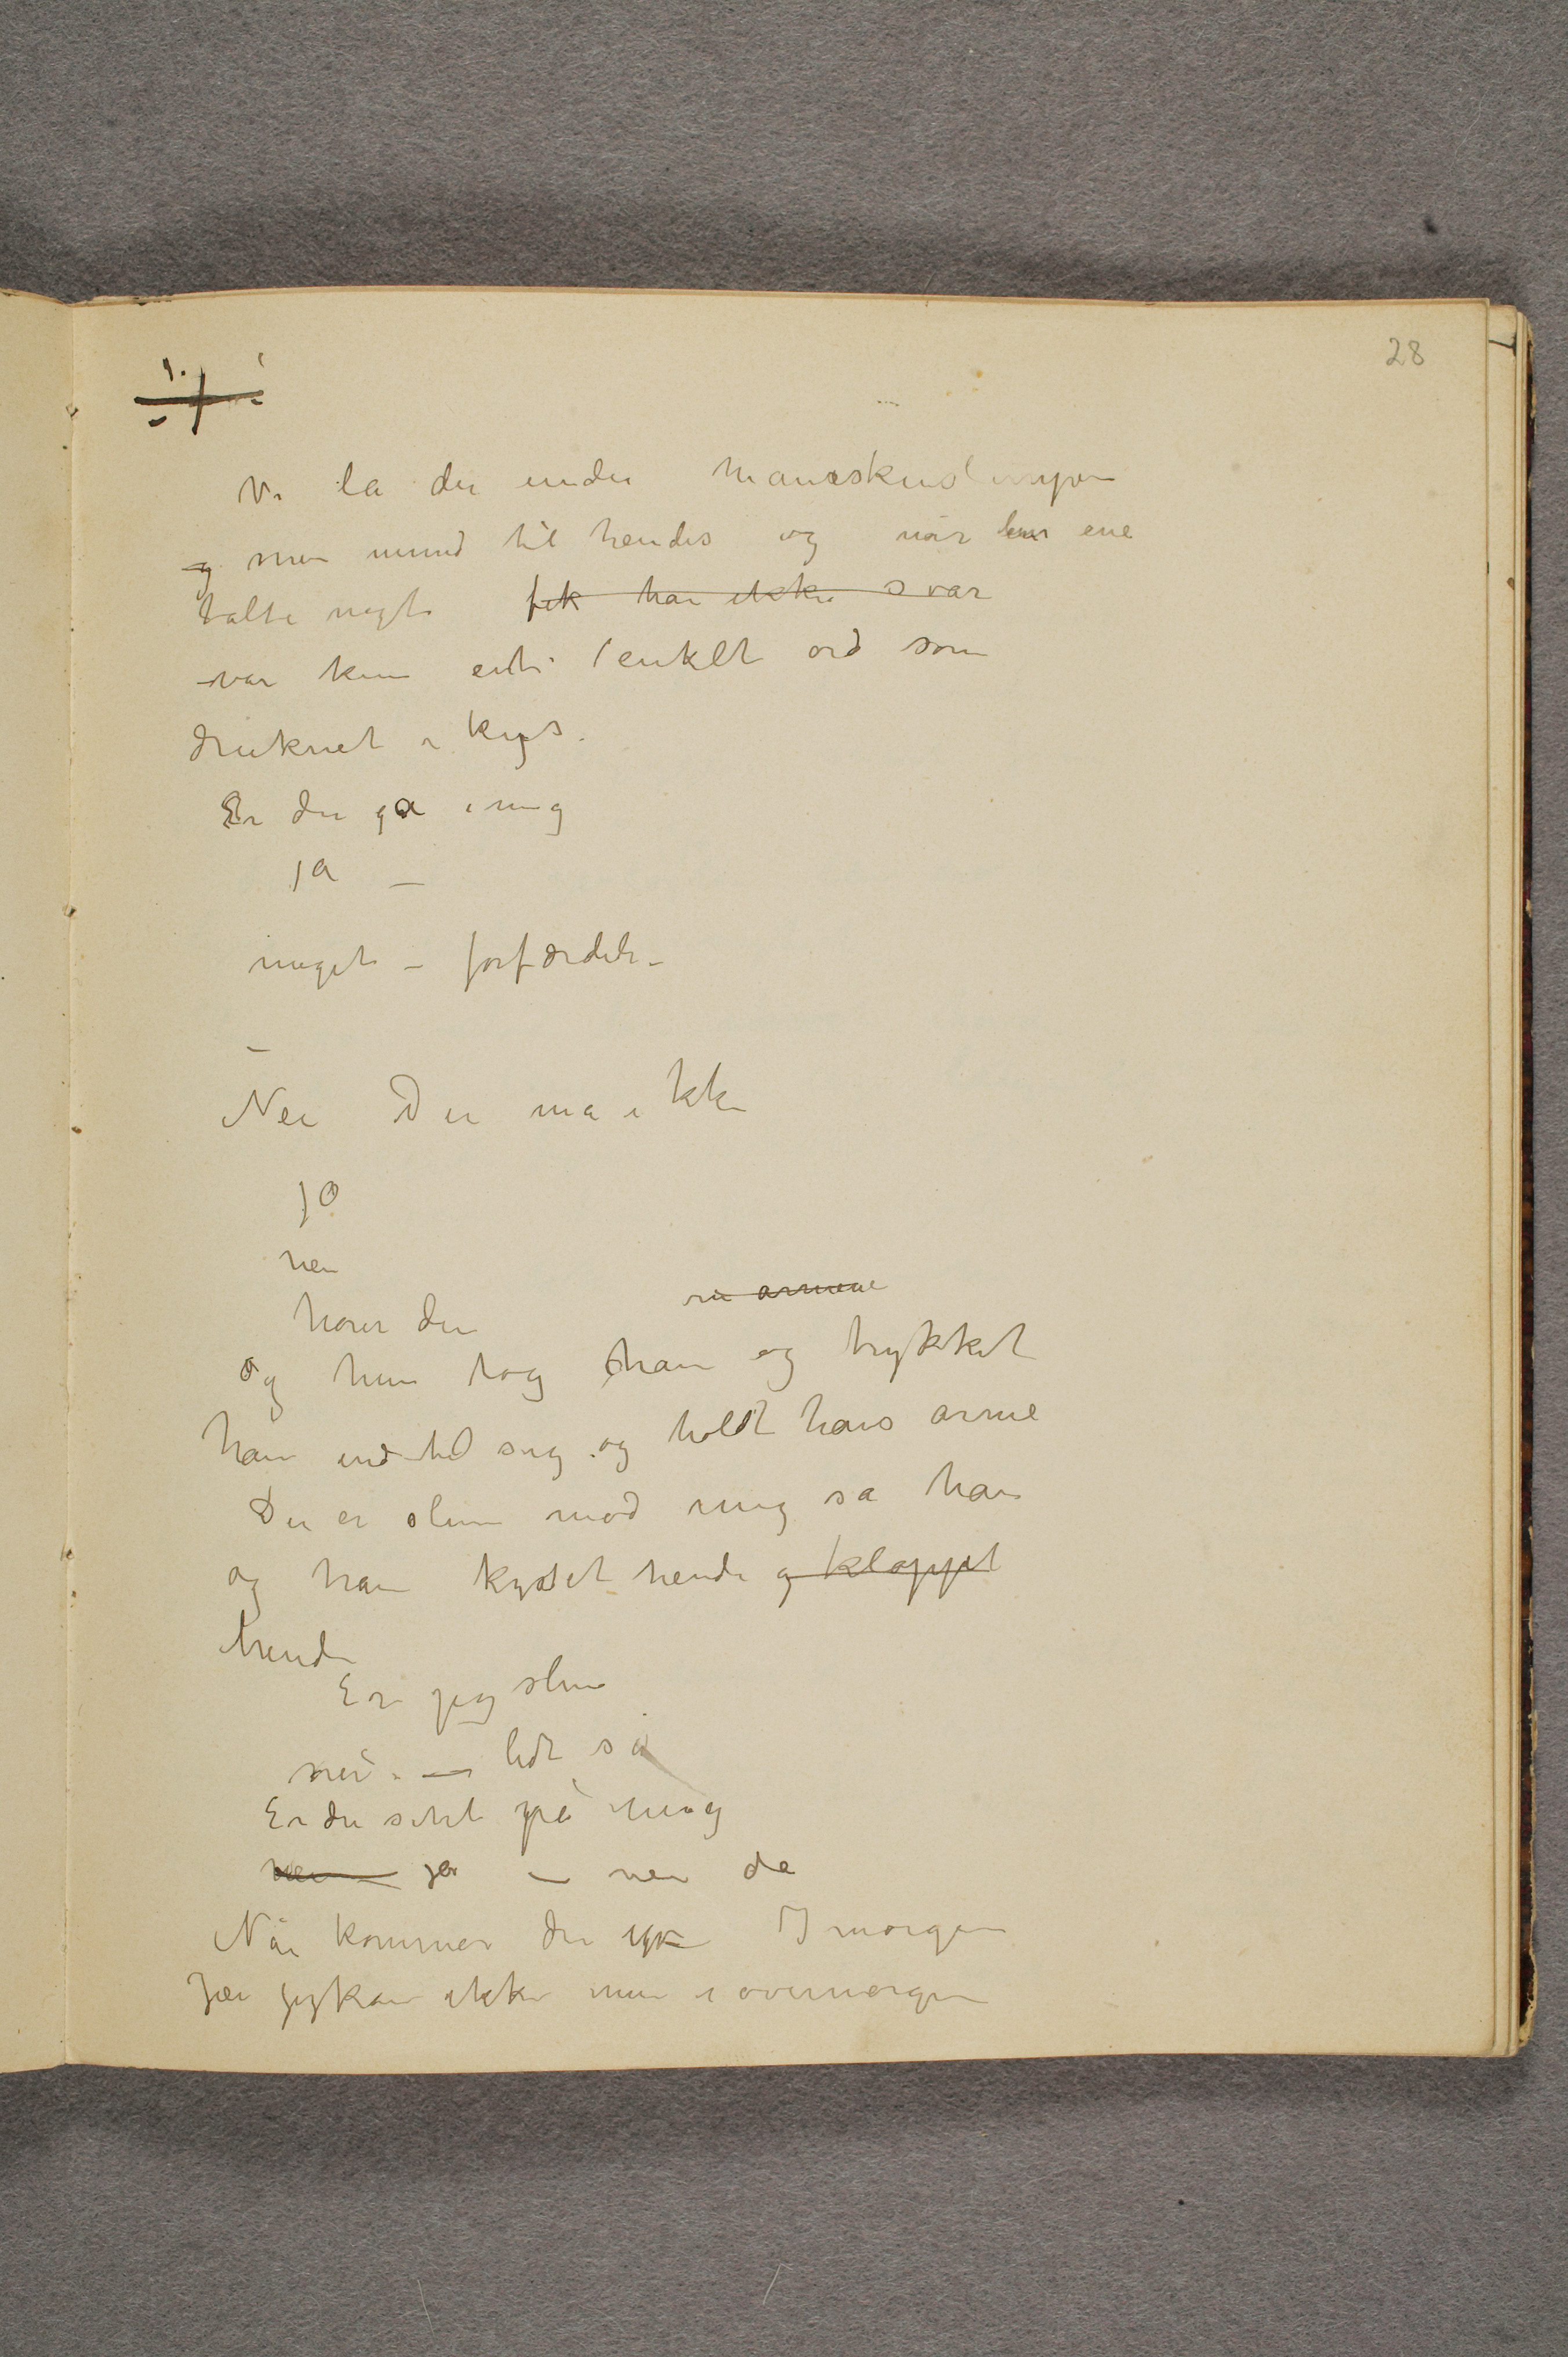 28
Vi la der under
og min mund til hendes og når en
talte noget fik han ikke svar
var kun et enkelt ord som
druknet i kys.
Er du gla i mig
ja –
meget – forfærdeli –
–
Nei Du må ikke
jo
nei
hører du
i armene
og hun tog han og trykket
ham ind til sig og holdt hans arme
Du er slem mod mig sa han
og han kysset hende og klappet
hende
Er jeg slem
nei – lidt så
Er du sint på mig
nei – ja – nei da
Når kommer du I morgen
Jei jeg kan ikke men i overmorgen